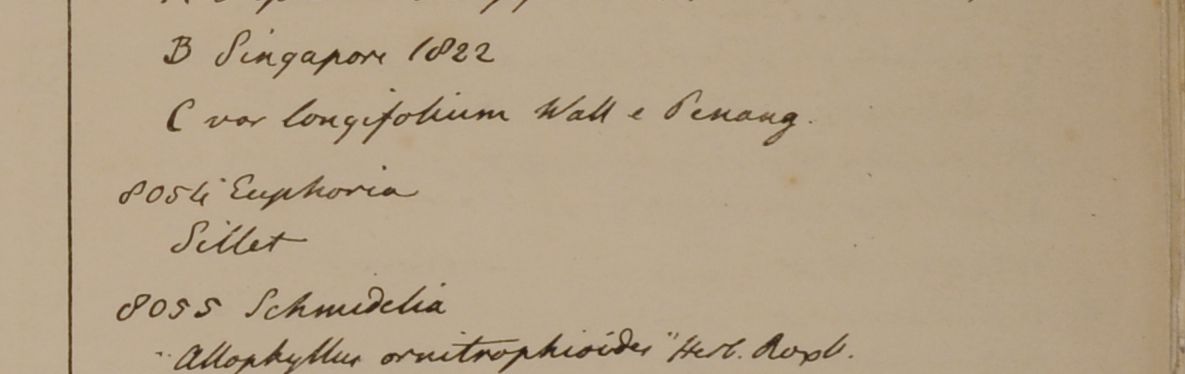 B Singapore 1822
C var longifolium Wall e Penang.
8054 Euphoria
Sillet
8055 Schmidelia
"Allophyllus ornitrophioides" Herb. Roxb.